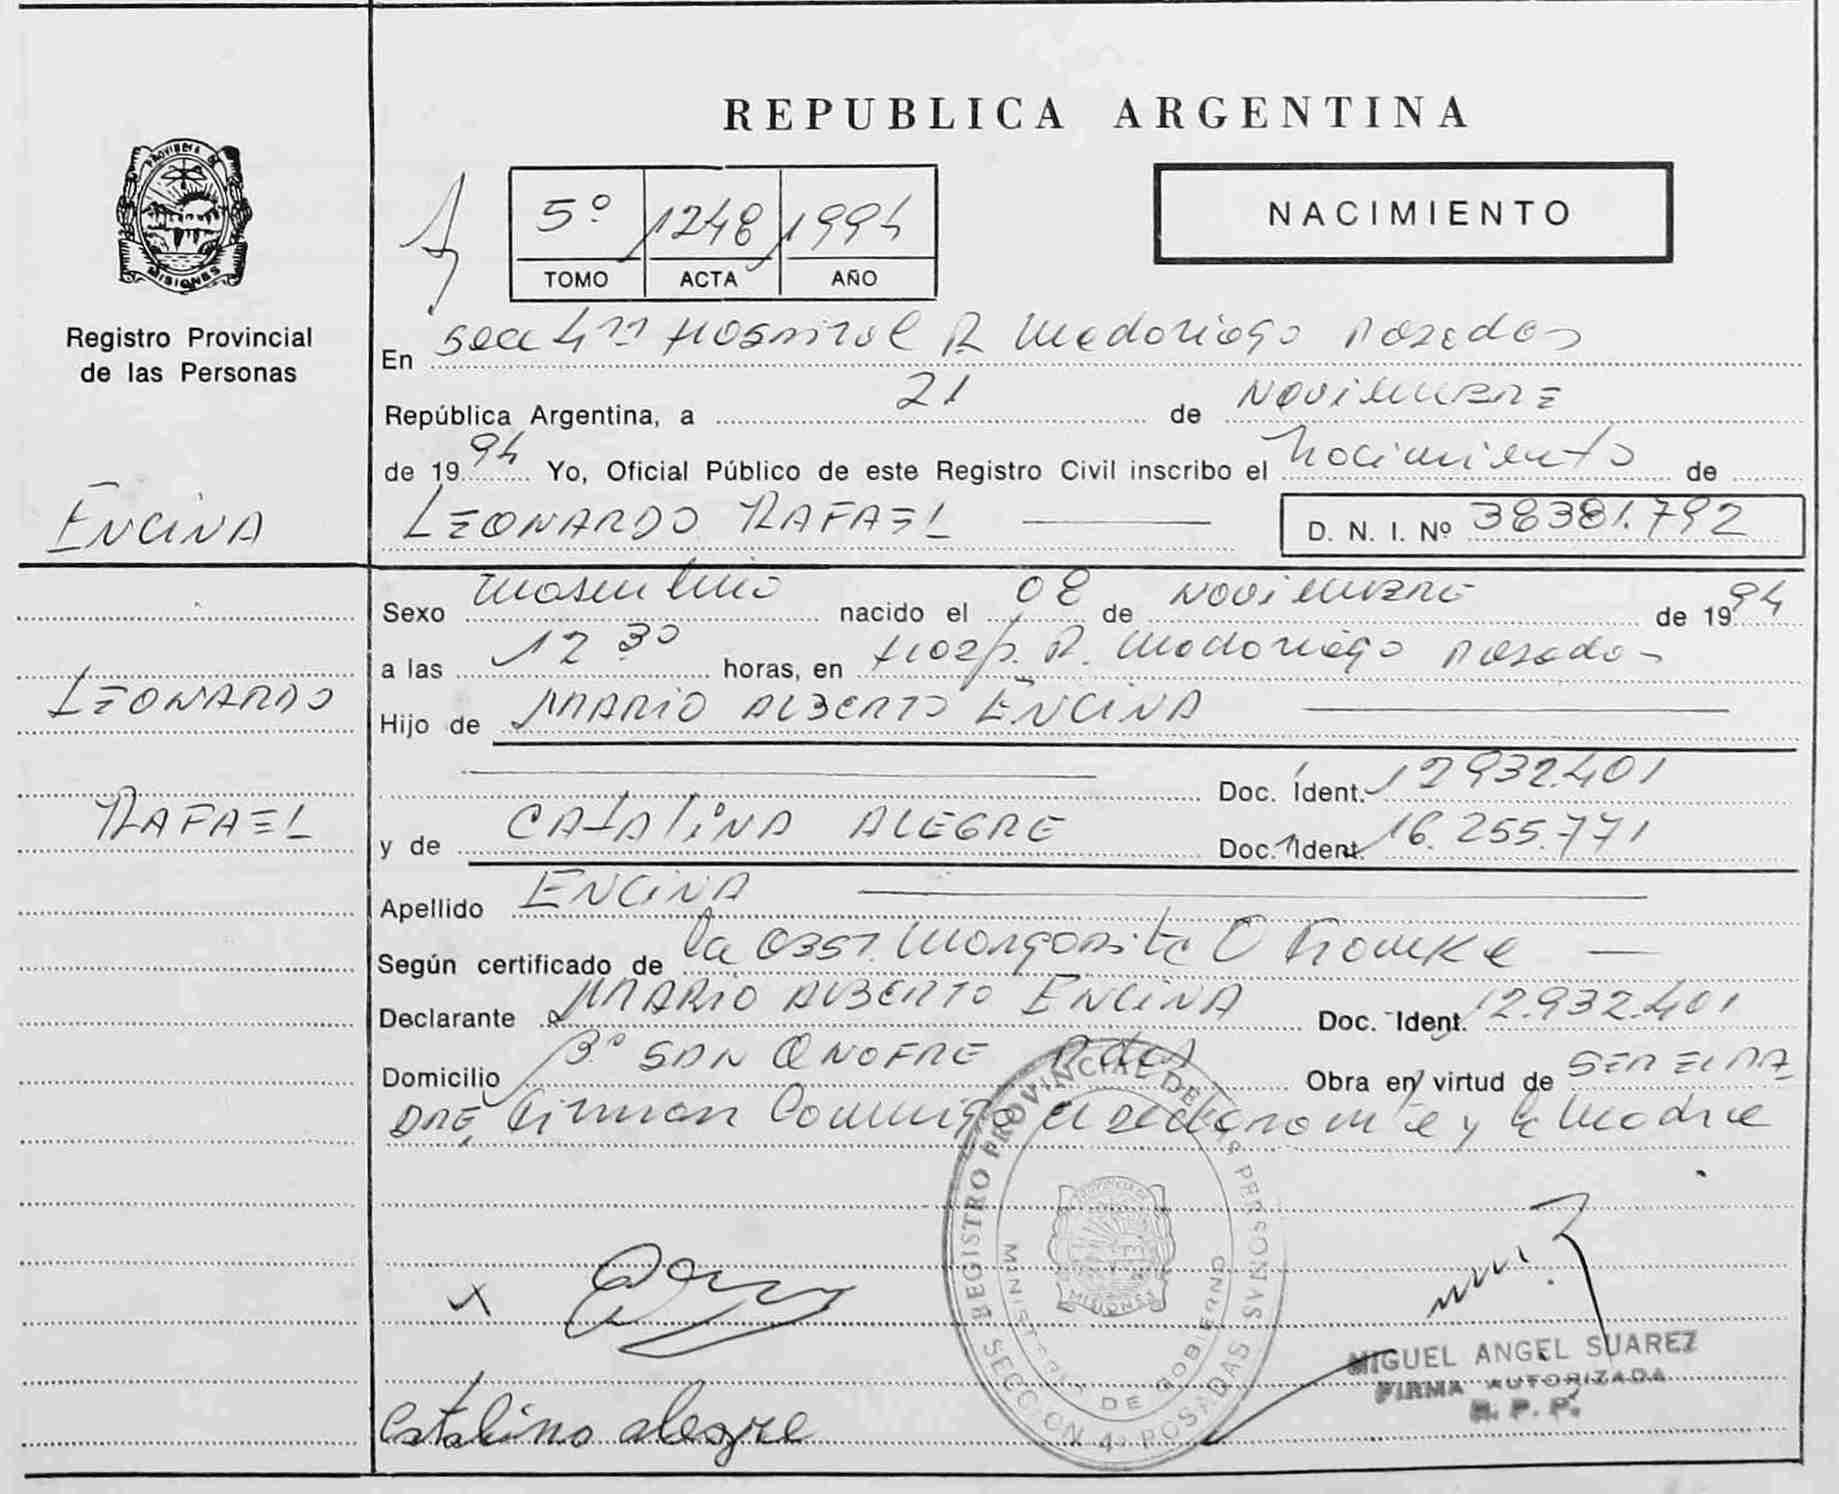 REPUBLICA ARGENTINA
PROVINCIA DE
MISIONES
Registro Provincial
de las Personas
5º 1248 1994
TOMO ACTA AÑO
NACIMIENTO
En Secc 4ta Hospital R. Madariaga Posadas
República Argentina, a 21 de Noviembre
de 1994 Yo, Oficial Público de este Registro Civil inscribo el Nacimiento de
ENCINA
LEONARDO RAFAEL
D. N. I. Nº 38381.792
Sexo masculino nacido el 08 de Noviembre de 1994
a las 12 30 horas, en Hosp. R. Madariaga Posadas
LEONARDO
Hijo de MARIO ALBERTO ENCINA
Doc. Ident. 12932.401
RAFAEL
y de CATALINA ALEGRE Doc. Ident. 16.255.771
Apellido ENCINA
Según certificado de la Obst. Margarita
Declarante MARIO ALBERTO ENCINA Doc. Ident. 12.932.401
Domicilio Bº SAN ONOFRE Pdas Obra en virtud de SER EL PA
DRE, Firman Conmigo el declarante y la Madre
REGISTRO PROVINCIAL DE LAS PERSONAS
MINISTERIO DE GOBIERNO
SECCION 4ª POSADAS
MISIONES
X
MIGUEL ANGEL SUAREZ
FIRMA AUTORIZADA
R. P. P.
Catalina alegre